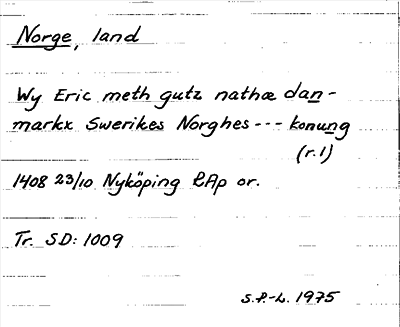 Norge, land
Wy Eric meth gutz nathæ dan-
markx Swerikes Norghes --- konung
(r.1)
1408 23/10 Nyköping RAp or.
Tr. SD: 1009
S.P.-L. 1975